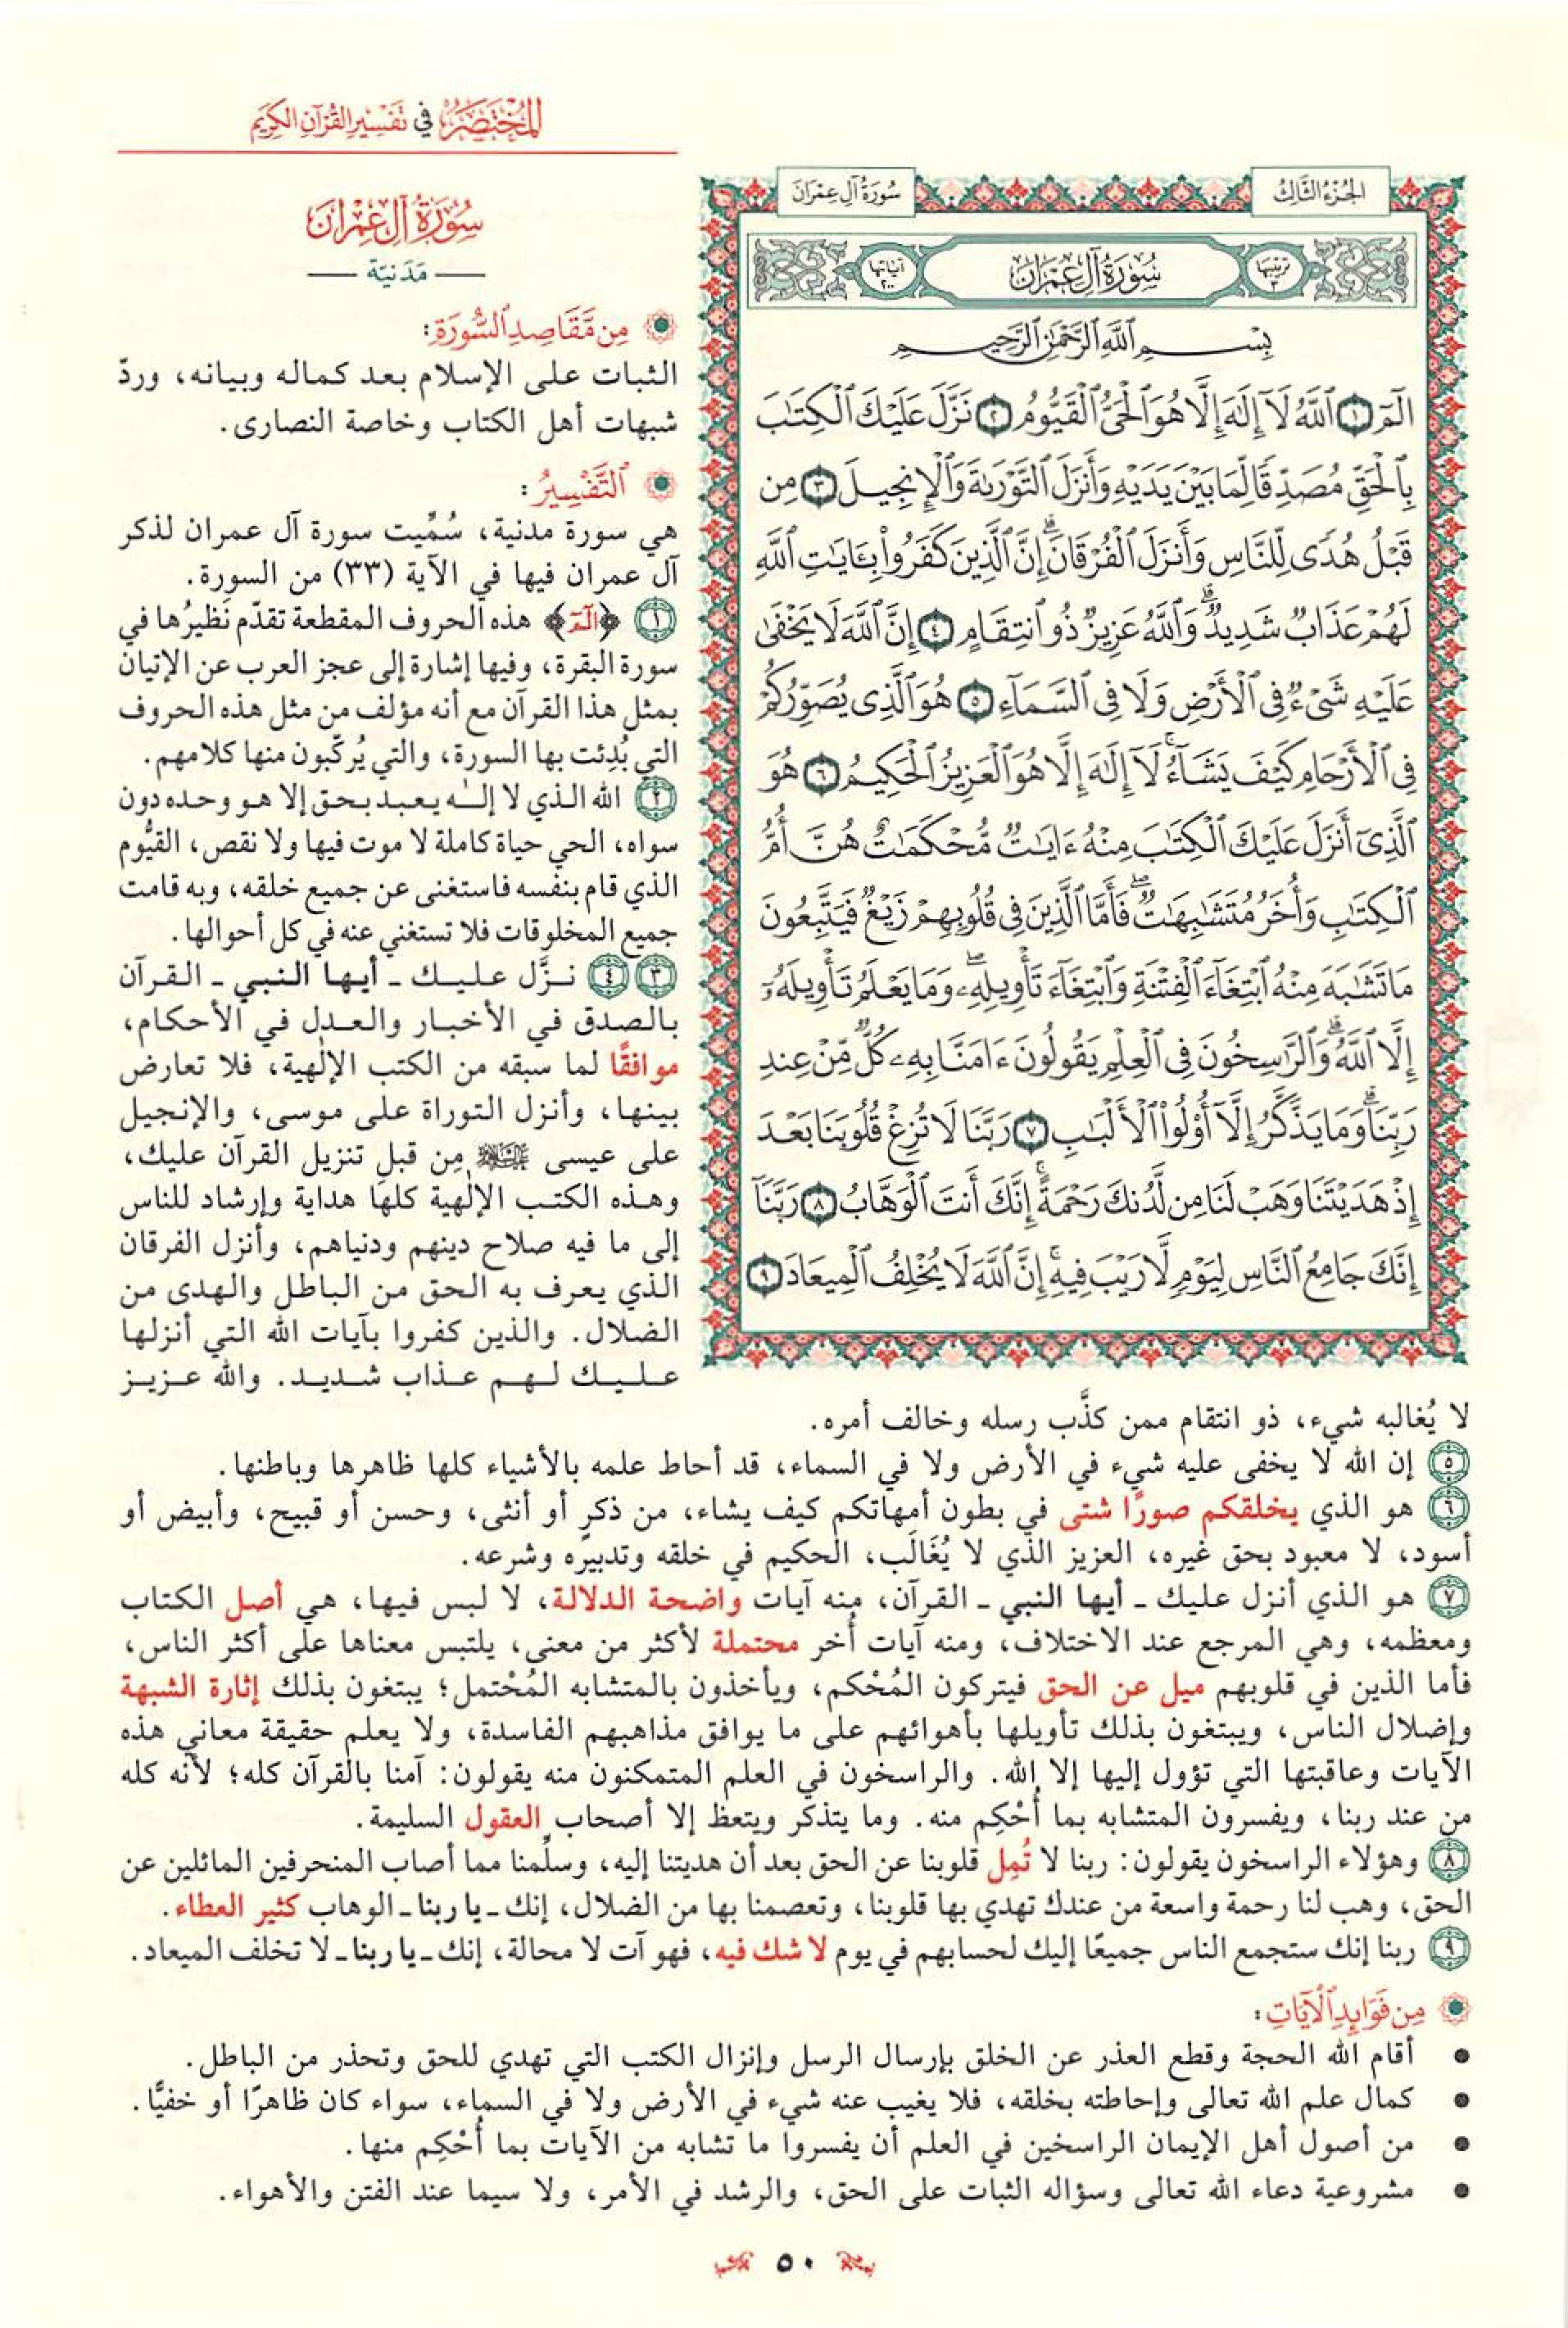 المختصر في تفسير القرآن الكريم
الجزء الثالث
سورة آل عمران
ترتيبها ٣
سُورَةُ آلِ عِمْرَانَ
آياتها ٢٠٠
بِسْمِ ٱللَّهِ ٱلرَّحْمَٰنِ ٱلرَّحِيمِ
الٓمٓ ١ ٱللَّهُ لَآ إِلَٰهَ إِلَّا هُوَ ٱلْحَىُّ ٱلْقَيُّومُ ٢ نَزَّلَ عَلَيْكَ ٱلْكِتَٰبَ
بِٱلْحَقِّ مُصَدِّقًا لِّمَا بَيْنَ يَدَيْهِ وَأَنزَلَ ٱلتَّوْرَىٰةَ وَٱلْإِنجِيلَ ٣ مِن
قَبْلُ هُدًى لِّلنَّاسِ وَأَنزَلَ ٱلْفُرْقَانَۗ إِنَّ ٱلَّذِينَ كَفَرُوا۟ بِـَٔايَٰتِ ٱللَّهِ
لَهُمْ عَذَابٌ شَدِيدٌۗ وَٱللَّهُ عَزِيزٌ ذُو ٱنتِقَامٍ ٤ إِنَّ ٱللَّهَ لَا يَخْفَىٰ
عَلَيْهِ شَىْءٌ فِى ٱلْأَرْضِ وَلَا فِى ٱلسَّمَآءِ ٥ هُوَ ٱلَّذِى يُصَوِّرُكُمْ
فِى ٱلْأَرْحَامِ كَيْفَ يَشَآءُۚ لَآ إِلَٰهَ إِلَّا هُوَ ٱلْعَزِيزُ ٱلْحَكِيمُ ٦ هُوَ
ٱلَّذِىٓ أَنزَلَ عَلَيْكَ ٱلْكِتَٰبَ مِنْهُ ءَايَٰتٌ مُّحْكَمَٰتٌ هُنَّ أُمُّ
ٱلْكِتَٰبِ وَأُخَرُ مُتَشَٰبِهَٰتٌۖ فَأَمَّا ٱلَّذِينَ فِى قُلُوبِهِمْ زَيْغٌ فَيَتَّبِعُونَ
مَا تَشَٰبَهَ مِنْهُ ٱبْتِغَآءَ ٱلْفِتْنَةِ وَٱبْتِغَآءَ تَأْوِيلِهِۦۖ وَمَا يَعْلَمُ تَأْوِيلَهُۥٓ
إِلَّا ٱللَّهُۗ وَٱلرَّٰسِخُونَ فِى ٱلْعِلْمِ يَقُولُونَ ءَامَنَّا بِهِۦ كُلٌّ مِّنْ عِندِ
رَبِّنَاۗ وَمَا يَذَّكَّرُ إِلَّآ أُو۟لُوا۟ ٱلْأَلْبَٰبِ ٧ رَبَّنَا لَا تُزِغْ قُلُوبَنَا بَعْدَ
إِذْ هَدَيْتَنَا وَهَبْ لَنَا مِن لَّدُنكَ رَحْمَةًۚ إِنَّكَ أَنتَ ٱلْوَهَّابُ ٨ رَبَّنَآ
إِنَّكَ جَامِعُ ٱلنَّاسِ لِيَوْمٍ لَّا رَيْبَ فِيهِۚ إِنَّ ٱللَّهَ لَا يُخْلِفُ ٱلْمِيعَادَ ٩
سُورَةُ آلِ عِمْرَانَ
مَدَنيّة
من مقاصد السورة:
الثبات على الإسلام بعد كماله وبيانه، وردّ
شبهات أهل الكتاب وخاصة النصارى.
التفسير:
هي سورة مدنية، سُمِّيت سورة آل عمران لذكر
آل عمران فيها في الآية (٣٣) من السورة.
١ ﴿الٓمٓ﴾ هذه الحروف المقطعة تقدّم نَظيرُها في
سورة البقرة، وفيها إشارة إلى عجز العرب عن الإتيان
بمثل هذا القرآن مع أنه مؤلف من مثل هذه الحروف
التي بُدِئت بها السورة، والتي يُركِّبون منها كلامهم.
٢ الله الذي لا إلـٰه يعبد بحق إلا هو وحده دون
سواه، الحي حياة كاملة لا موت فيها ولا نقص، القيُّوم
الذي قام بنفسه فاستغنى عن جميع خلقه، وبه قامت
جميع المخلوقات فلا تستغني عنه في كل أحوالها.
٣ ٤ نزَّل عليك ـ أيها النبي ـ القرآن
بالصدق في الأخبار والعدل في الأحكام،
موافقًا لما سبقه من الكتب الإلٰهية، فلا تعارض
بينها، وأنزل التوراة على موسى، والإنجيل
على عيسى عليهما السلام مِن قبلِ تنزيل القرآن عليك،
وهذه الكتب الإلٰهية كلها هداية وإرشاد للناس
إلى ما فيه صلاح دينهم ودنياهم، وأنزل الفرقان
الذي يعرف به الحق من الباطل والهدى من
الضلال. والذين كفروا بآيات الله التي أنزلها
عليك لهم عذاب شديد. والله عزيز
لا يُغالبه شيء، ذو انتقام ممن كذَّب رسله وخالف أمره.
٥ إن الله لا يخفى عليه شيء في الأرض ولا في السماء، قد أحاط علمه بالأشياء كلها ظاهرها وباطنها.
٦ هو الذي يخلقكم صورًا شتى في بطون أمهاتكم كيف يشاء، من ذكرٍ أو أنثى، وحسن أو قبيح، وأبيض أو
أسود، لا معبود بحق غيره، العزيز الذي لا يُغَالَب، الحكيم في خلقه وتدبيره وشرعه.
٧ هو الذي أنزل عليك ـ أيها النبي ـ القرآن، منه آيات واضحة الدلالة، لا لبس فيها، هي أصل الكتاب
ومعظمه، وهي المرجع عند الاختلاف، ومنه آيات أُخر محتملة لأكثر من معنى، يلتبس معناها على أكثر الناس،
فأما الذين في قلوبهم ميل عن الحق فيتركون المُحْكم، ويأخذون بالمتشابه المُحْتمل؛ يبتغون بذلك إثارة الشبهة
وإضلال الناس، ويبتغون بذلك تأويلها بأهوائهم على ما يوافق مذاهبهم الفاسدة، ولا يعلم حقيقة معاني هذه
الآيات وعاقبتها التي تؤول إليها إلا الله. والراسخون في العلم المتمكنون منه يقولون: آمنا بالقرآن كله؛ لأنه كله
من عند ربنا، ويفسرون المتشابه بما أُحْكِم منه. وما يتذكر ويتعظ إلا أصحاب العقول السليمة.
٨ وهؤلاء الراسخون يقولون: ربنا لا تُمِل قلوبنا عن الحق بعد أن هديتنا إليه، وسلِّمنا مما أصاب المنحرفين المائلين عن
الحق، وهب لنا رحمة واسعة من عندك تهدي بها قلوبنا، وتعصمنا بها من الضلال، إنك ـ يا ربنا ـ الوهاب كثير العطاء.
٩ ربنا إنك ستجمع الناس جميعًا إليك لحسابهم في يوم لا شك فيه، فهو آت لا محالة، إنك ـ يا ربنا ـ لا تخلف الميعاد.
من فوائد الآيات:
• أقام الله الحجة وقطع العذر عن الخلق بإرسال الرسل وإنزال الكتب التي تهدي للحق وتحذر من الباطل.
• كمال علم الله تعالى وإحاطته بخلقه، فلا يغيب عنه شيء في الأرض ولا في السماء، سواء كان ظاهرًا أو خفيًّا.
• من أصول أهل الإيمان الراسخين في العلم أن يفسروا ما تشابه من الآيات بما أُحْكِم منها.
• مشروعية دعاء الله تعالى وسؤاله الثبات على الحق، والرشد في الأمر، ولا سيما عند الفتن والأهواء.
٥٠